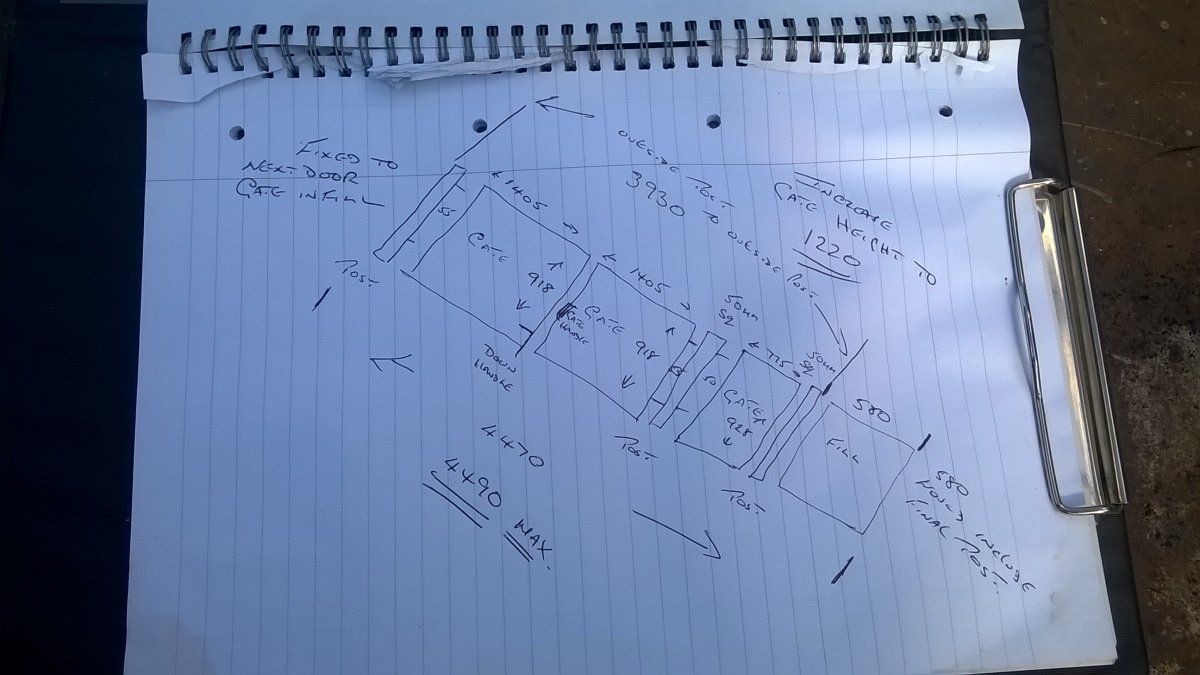 FIXED TO
NEXT DOOR
GATE INFILL
OUTSIDE POST
3930 TO OUTSIDE POST
INCREASE
GATE HEIGHT TO
1220
1405
55
GATE
918
POST
DOWN
HANDLE
1405
GATE
HANDLE
918
55
POST
50MM
SQ
55
775
GATE
928
50MM
SQ
POST
580
FILL
580
WOULD INCLUDE
FINAL POST
4470
4490 MAX.